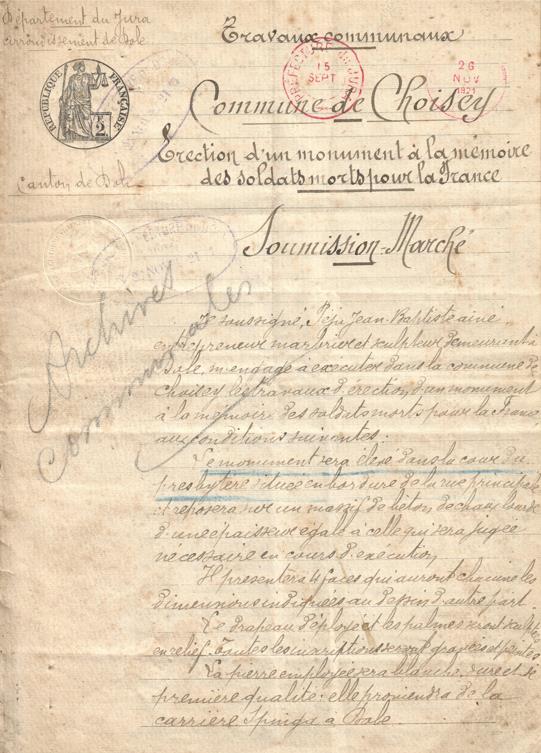 Département du Jura
arrondissement de Dole
Travaux communaux
RÉPUBLIQUE FRANÇAISE
2
PRÉFECTURE DU JURA
15
SEPT
26
NOV
1921
Commune de Choisey
Erection d'un monument à la mémoire
des soldats morts pour la France
Canton de Dole
Soumission-Marché
Archives
communales
Je soussigné, Jean-Baptiste ainé
entrepreneur marbrier et sculpteur demeurant à
Dole, m'engage à exécuter dans la commune de
Choisey les travaux d'érection d'un monument
à la mémoire des soldats morts pour la France
aux conditions suivantes:
Le monument sera élevé dans la cour du
presbytère située en bordure de la rue principale
et reposera sur un massif de béton de chaux lourde
d'une épaisseur égale à celle qui sera jugée
nécessaire en cours d'exécution
Il présentera 4 faces qui auront chacune les
dimensions indiquées au dessin d'autre part.
Le drapeau déployé et les palmes seront
en relief. Toutes les inscriptions seront gravées et peintes
La pierre employée sera blanche, dure et de
première qualité: elle proviendra de la
carrière à Dole